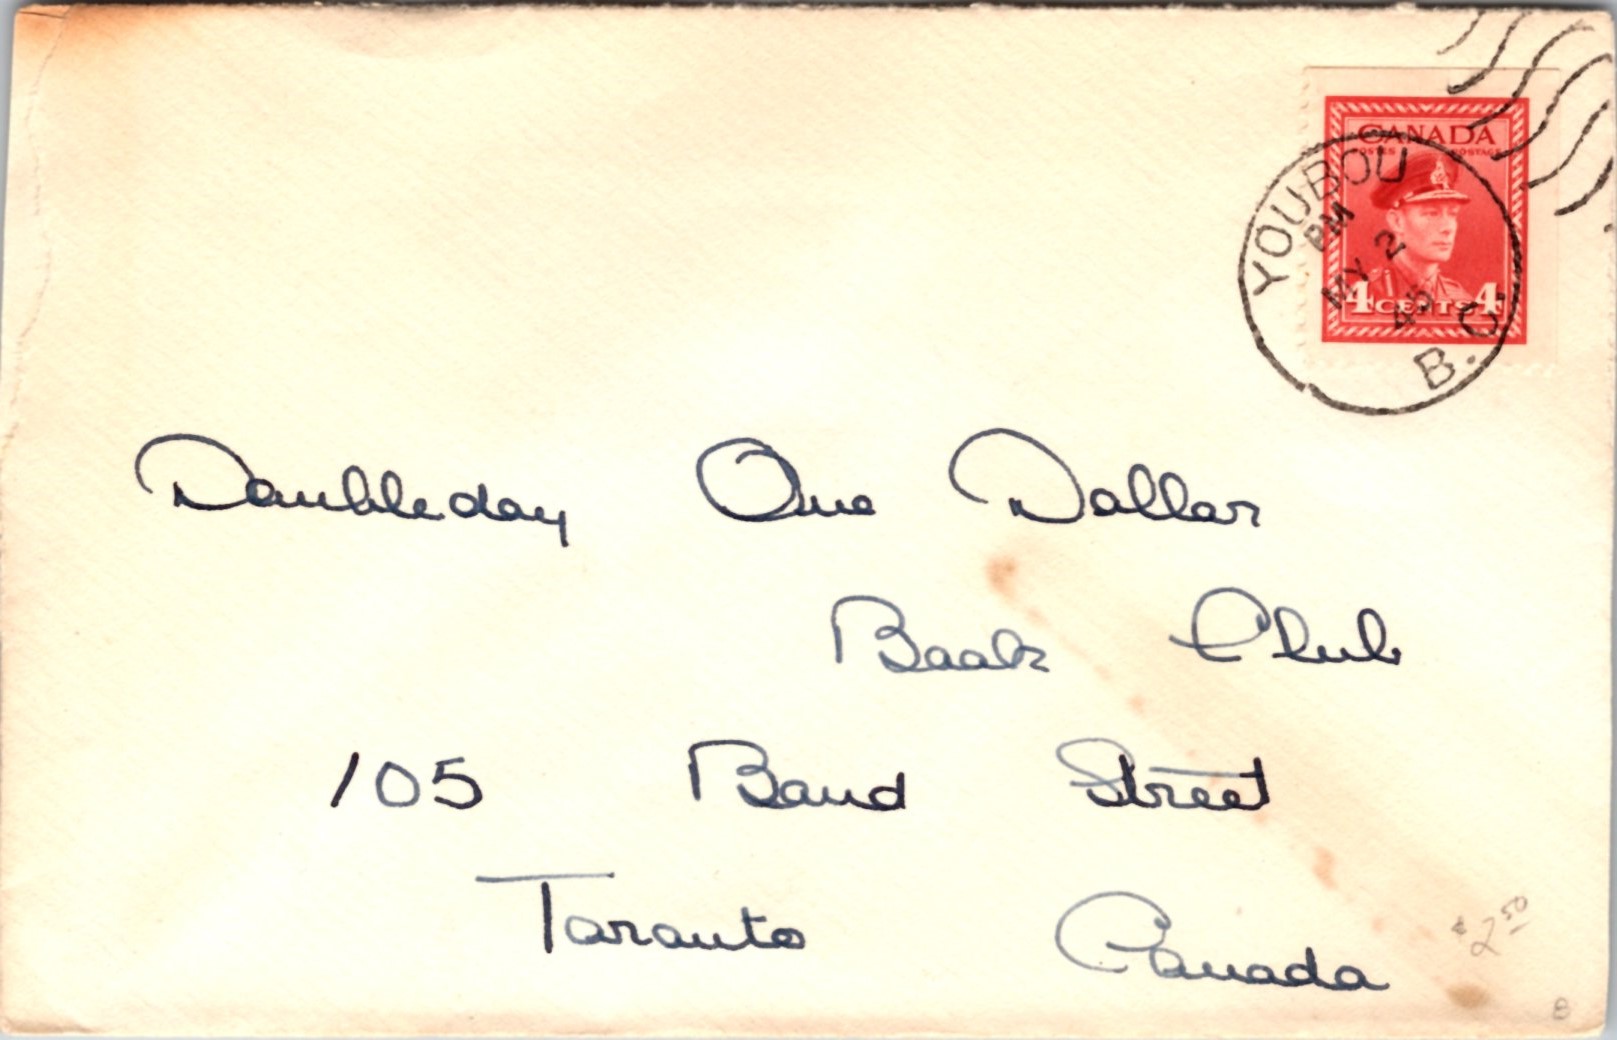 CANADA
POSTES POSTAGE
4 CENTS 4
YOUBOU
PM
MY 2
45
B.C.
Doubleday One Dollar
Book Club
105 Bond Street
Toronto Canada
$2.50
B